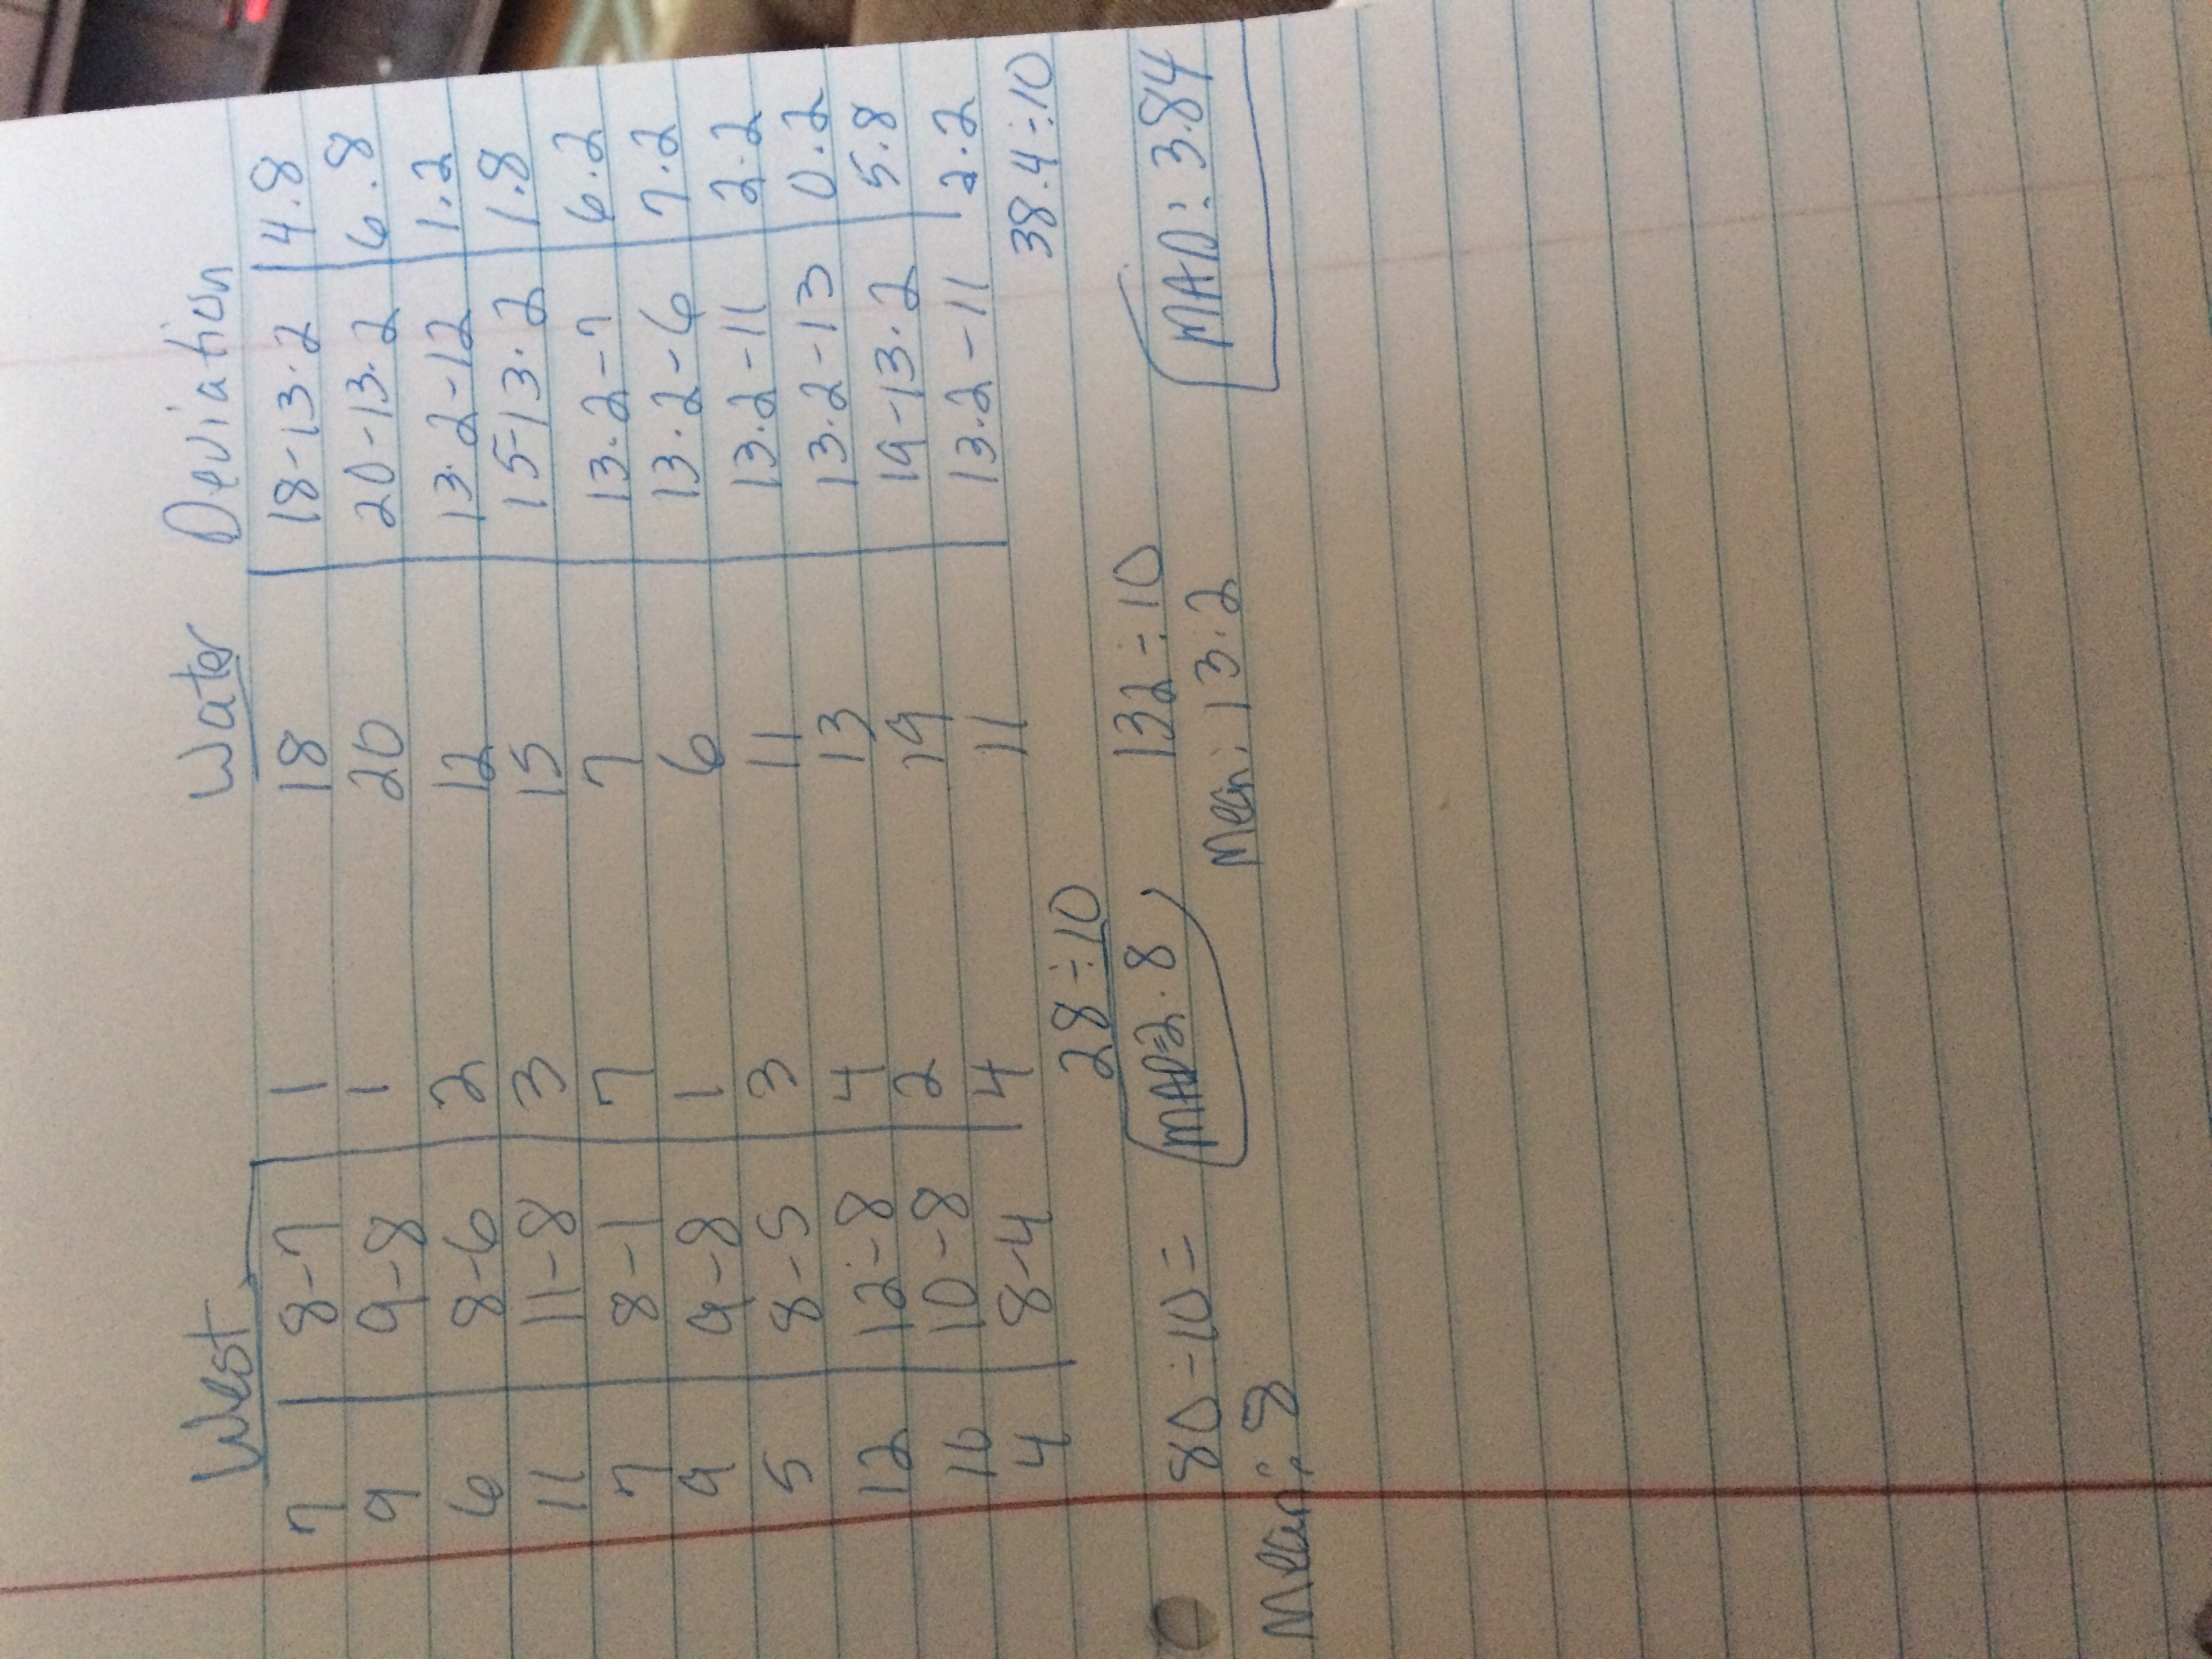 West Water Deviation
7 8-7 1 18 18-13.2 4.8
9 9-8 1 20 20-13.2 6.8
6 8-6 2 12 13.2-12 1.2
11 11-8 3 15 15-13.2 1.8
7 8-1 7 7 13.2-7 6.2
9 9-8 1 6 13.2-6 7.2
5 8-5 3 11 13.2-11 2.2
12 12-8 4 13 13.2-13 0.2
10 10-8 2 19 19-13.2 5.8
4 8-4 4 11 13.2-11 2.2
28÷10 38.4÷10
80÷10= MAD=2.8 132÷10 MAD: 3.84
Mean: 8 Mean: 13.2